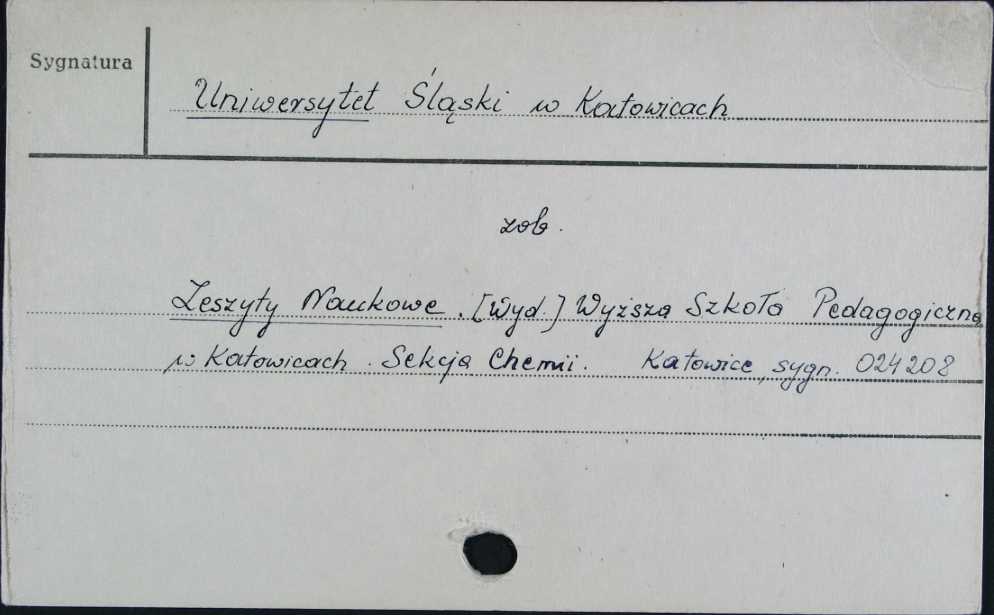 Sygnatura
Uniwersytet Śląski w Katowicach
zob.
Zeszyty Naukowe. [Wyd.] Wyższa Szkoła Pedagogiczna
w Katowicach. Sekcja Chemii. Katowice, sygn. 024208